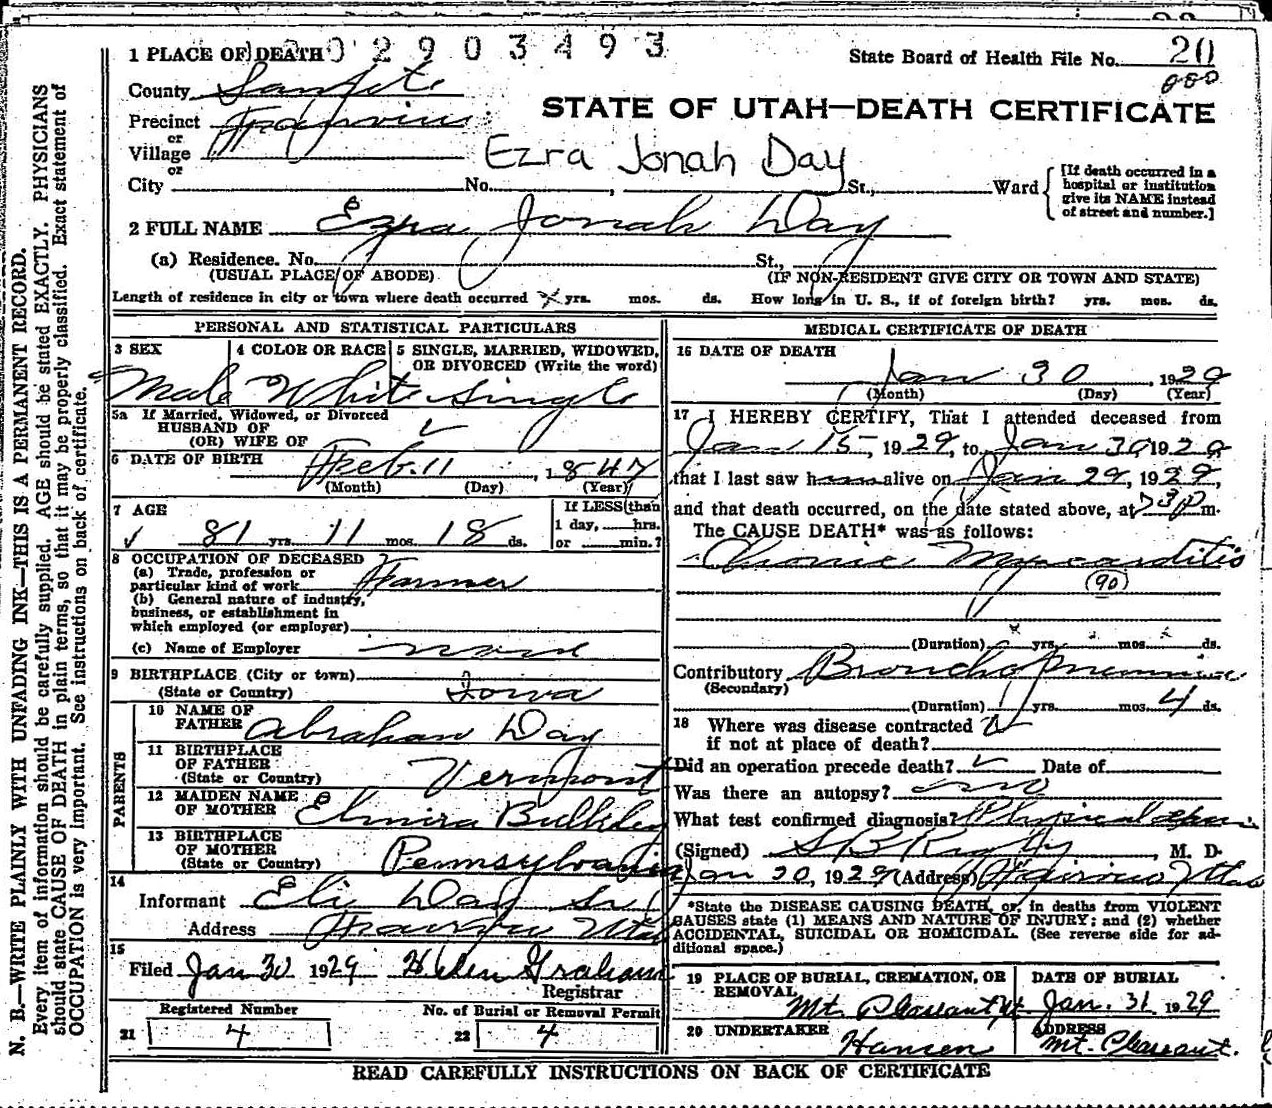 1 PLACE OF DEATH 02903493
State Board of Health File No. 20
County Sanpete
STATE OF UTAH—DEATH CERTIFICATE
Precinct
or
Village
Ezra Jonah Day
or
City No. , St., Ward
[If death occurred in a
hospital or institution
give its NAME instead
of street and number.]
2 FULL NAME Ezra Jonah Day
(a) Residence. No. St.,
(USUAL PLACE OF ABODE) (IF NON-RESIDENT GIVE CITY OR TOWN AND STATE)
Length of residence in city or town where death occurred yrs. mos. ds. How long in U. S., if of foreign birth? yrs. mos. ds.
PERSONAL AND STATISTICAL PARTICULARS
3 SEX
Male
4 COLOR OR RACE
White
5 SINGLE, MARRIED, WIDOWED,
OR DIVORCED (Write the word)
Single
5a If Married, Widowed, or Divorced
HUSBAND OF
(OR) WIFE OF
6 DATE OF BIRTH Feb. 11, 1847
(Month) (Day) (Year)
7 AGE
81 yrs. 11 mos. 18 ds.
If LESS than
1 day, hrs.
or min.?
8 OCCUPATION OF DECEASED
(a) Trade, profession or
particular kind of work Farmer
(b) General nature of industry,
business, or establishment in
which employed (or employer)
(c) Name of Employer
9 BIRTHPLACE (City or town)
(State or Country) Iowa
PARENTS
10 NAME OF
FATHER Abraham Day
11 BIRTHPLACE
OF FATHER
(State or Country) Vermont
12 MAIDEN NAME
OF MOTHER Elmira Bulkley
13 BIRTHPLACE
OF MOTHER
(State or Country) Pennsylvania
14
Informant Eli Day Sr
Address Fairview Utah
15
Filed Jan 30 1929 Helen Graham
Registrar
Registered Number
21 4
No. of Burial or Removal Permit
22 4
MEDICAL CERTIFICATE OF DEATH
16 DATE OF DEATH
Jan 30, 1929
(Month) (Day) (Year)
17 I HEREBY CERTIFY, That I attended deceased from
Jan 15, 1929, to Jan 30 1929
that I last saw h alive on Jan 29, 1929,
and that death occurred, on the date stated above, at 730p m.
The CAUSE DEATH* was as follows:
Chronic Myocarditis
(90)
(Duration) yrs. mos. ds.
Contributory Broncho Pneumonia
(Secondary)
(Duration) yrs. mos. 4 ds.
18 Where was disease contracted
if not at place of death?
Did an operation precede death? Date of
Was there an autopsy? no
What test confirmed diagnosis? Physical exam
(Signed) , M. D.
Jan 20, 1929 (Address) Fairview Utah
*State the DISEASE CAUSING DEATH, or, in deaths from VIOLENT
CAUSES state (1) MEANS AND NATURE OF INJURY; and (2) whether
ACCIDENTAL, SUICIDAL OR HOMICIDAL. (See reverse side for ad-
ditional space.)
19 PLACE OF BURIAL, CREMATION, OR
REMOVAL
Mt. Pleasant Ut.
DATE OF BURIAL
Jan. 31 1929
20 UNDERTAKER
Hansen
ADDRESS
Mt. Pleasant.
READ CAREFULLY INSTRUCTIONS ON BACK OF CERTIFICATE
N. B.—WRITE PLAINLY WITH UNFADING INK—THIS IS A PERMANENT RECORD.
Every item of information should be carefully supplied. AGE should be stated EXACTLY. PHYSICIANS
should state CAUSE OF DEATH in plain terms, so that it may be properly classified. Exact statement of
OCCUPATION is very important. See instructions on back of certificate.